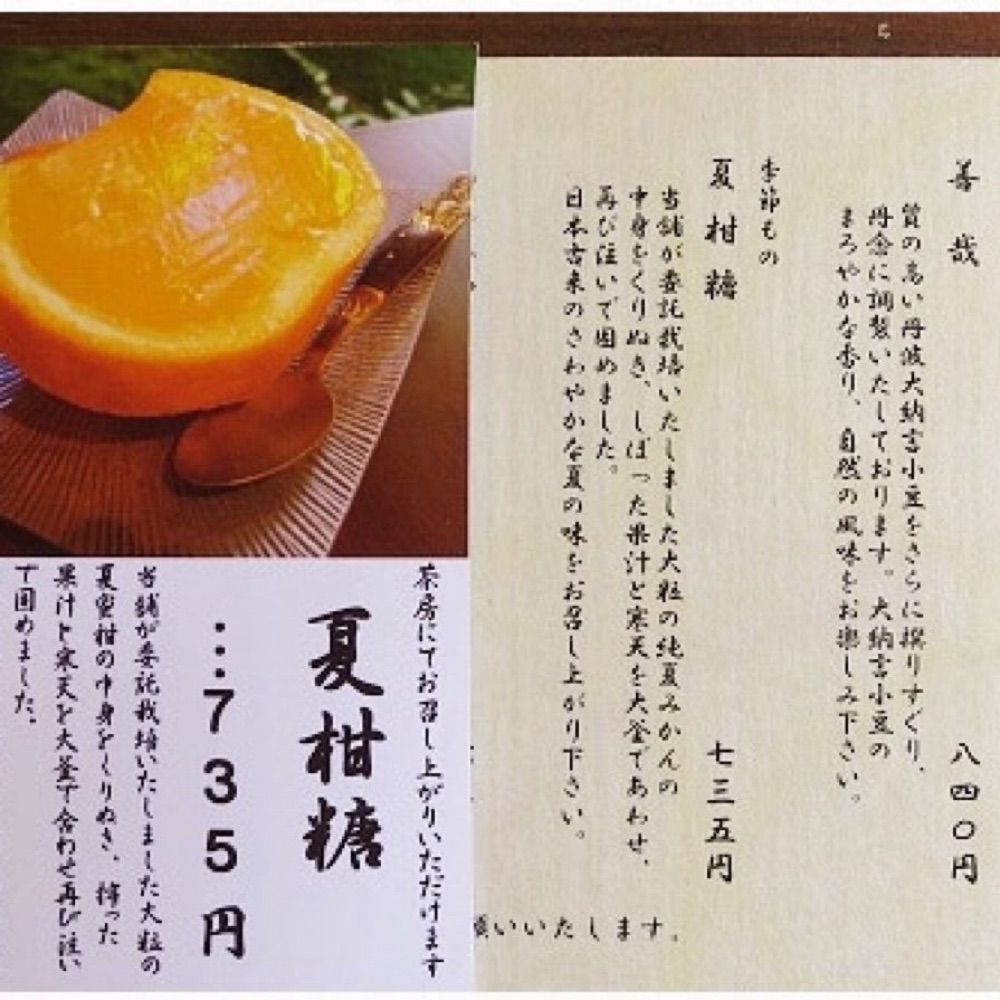 善哉
八四〇円
質の高い丹波大納言小豆をさらに撰りすぐり、
丹念に調製いたしております。大納言小豆の
まろやかな香り、自然の風味をお楽しみ下さい。
季節もの
夏柑糖
七三五円
当舗が委託栽培いたしました大粒の純夏みかんの
中身をくりぬき、しぼった果汁と寒天を大釜であわせ、
再び注いで固めました。
日本古来のさわやかな夏の味をお召し上がり下さい。
願いいたします。
茶房にてお召し上がりいただけます
夏柑糖
…735円
当舗が委託栽培いたしました大粒の
夏蜜柑の中身をくりぬき、搾った
果汁と寒天を大釜で合わせ再び注い
で固めました。